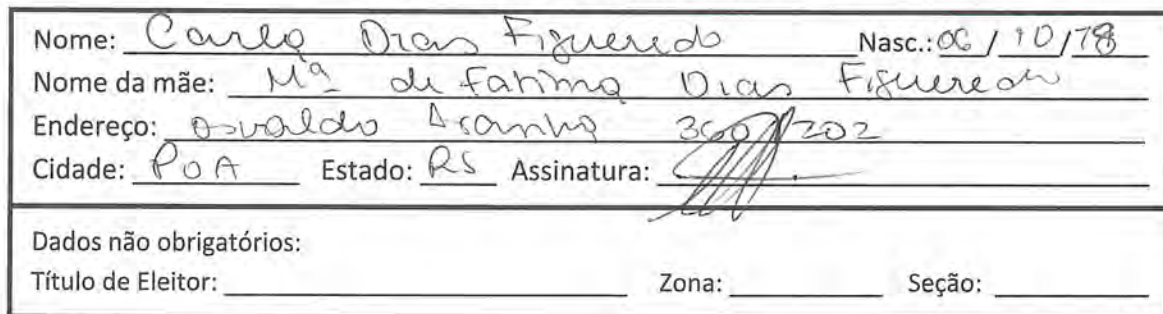 Nome: Carla Dias Figueredo Nasc.: 06 / 10 / 78
Nome da mãe: Mª de Fatima Dias Figueredo
Endereço: Osvaldo Aranha 360 / 202
Cidade: POA Estado: RS Assinatura:
Dados não obrigatórios:
Título de Eleitor: Zona: Seção: